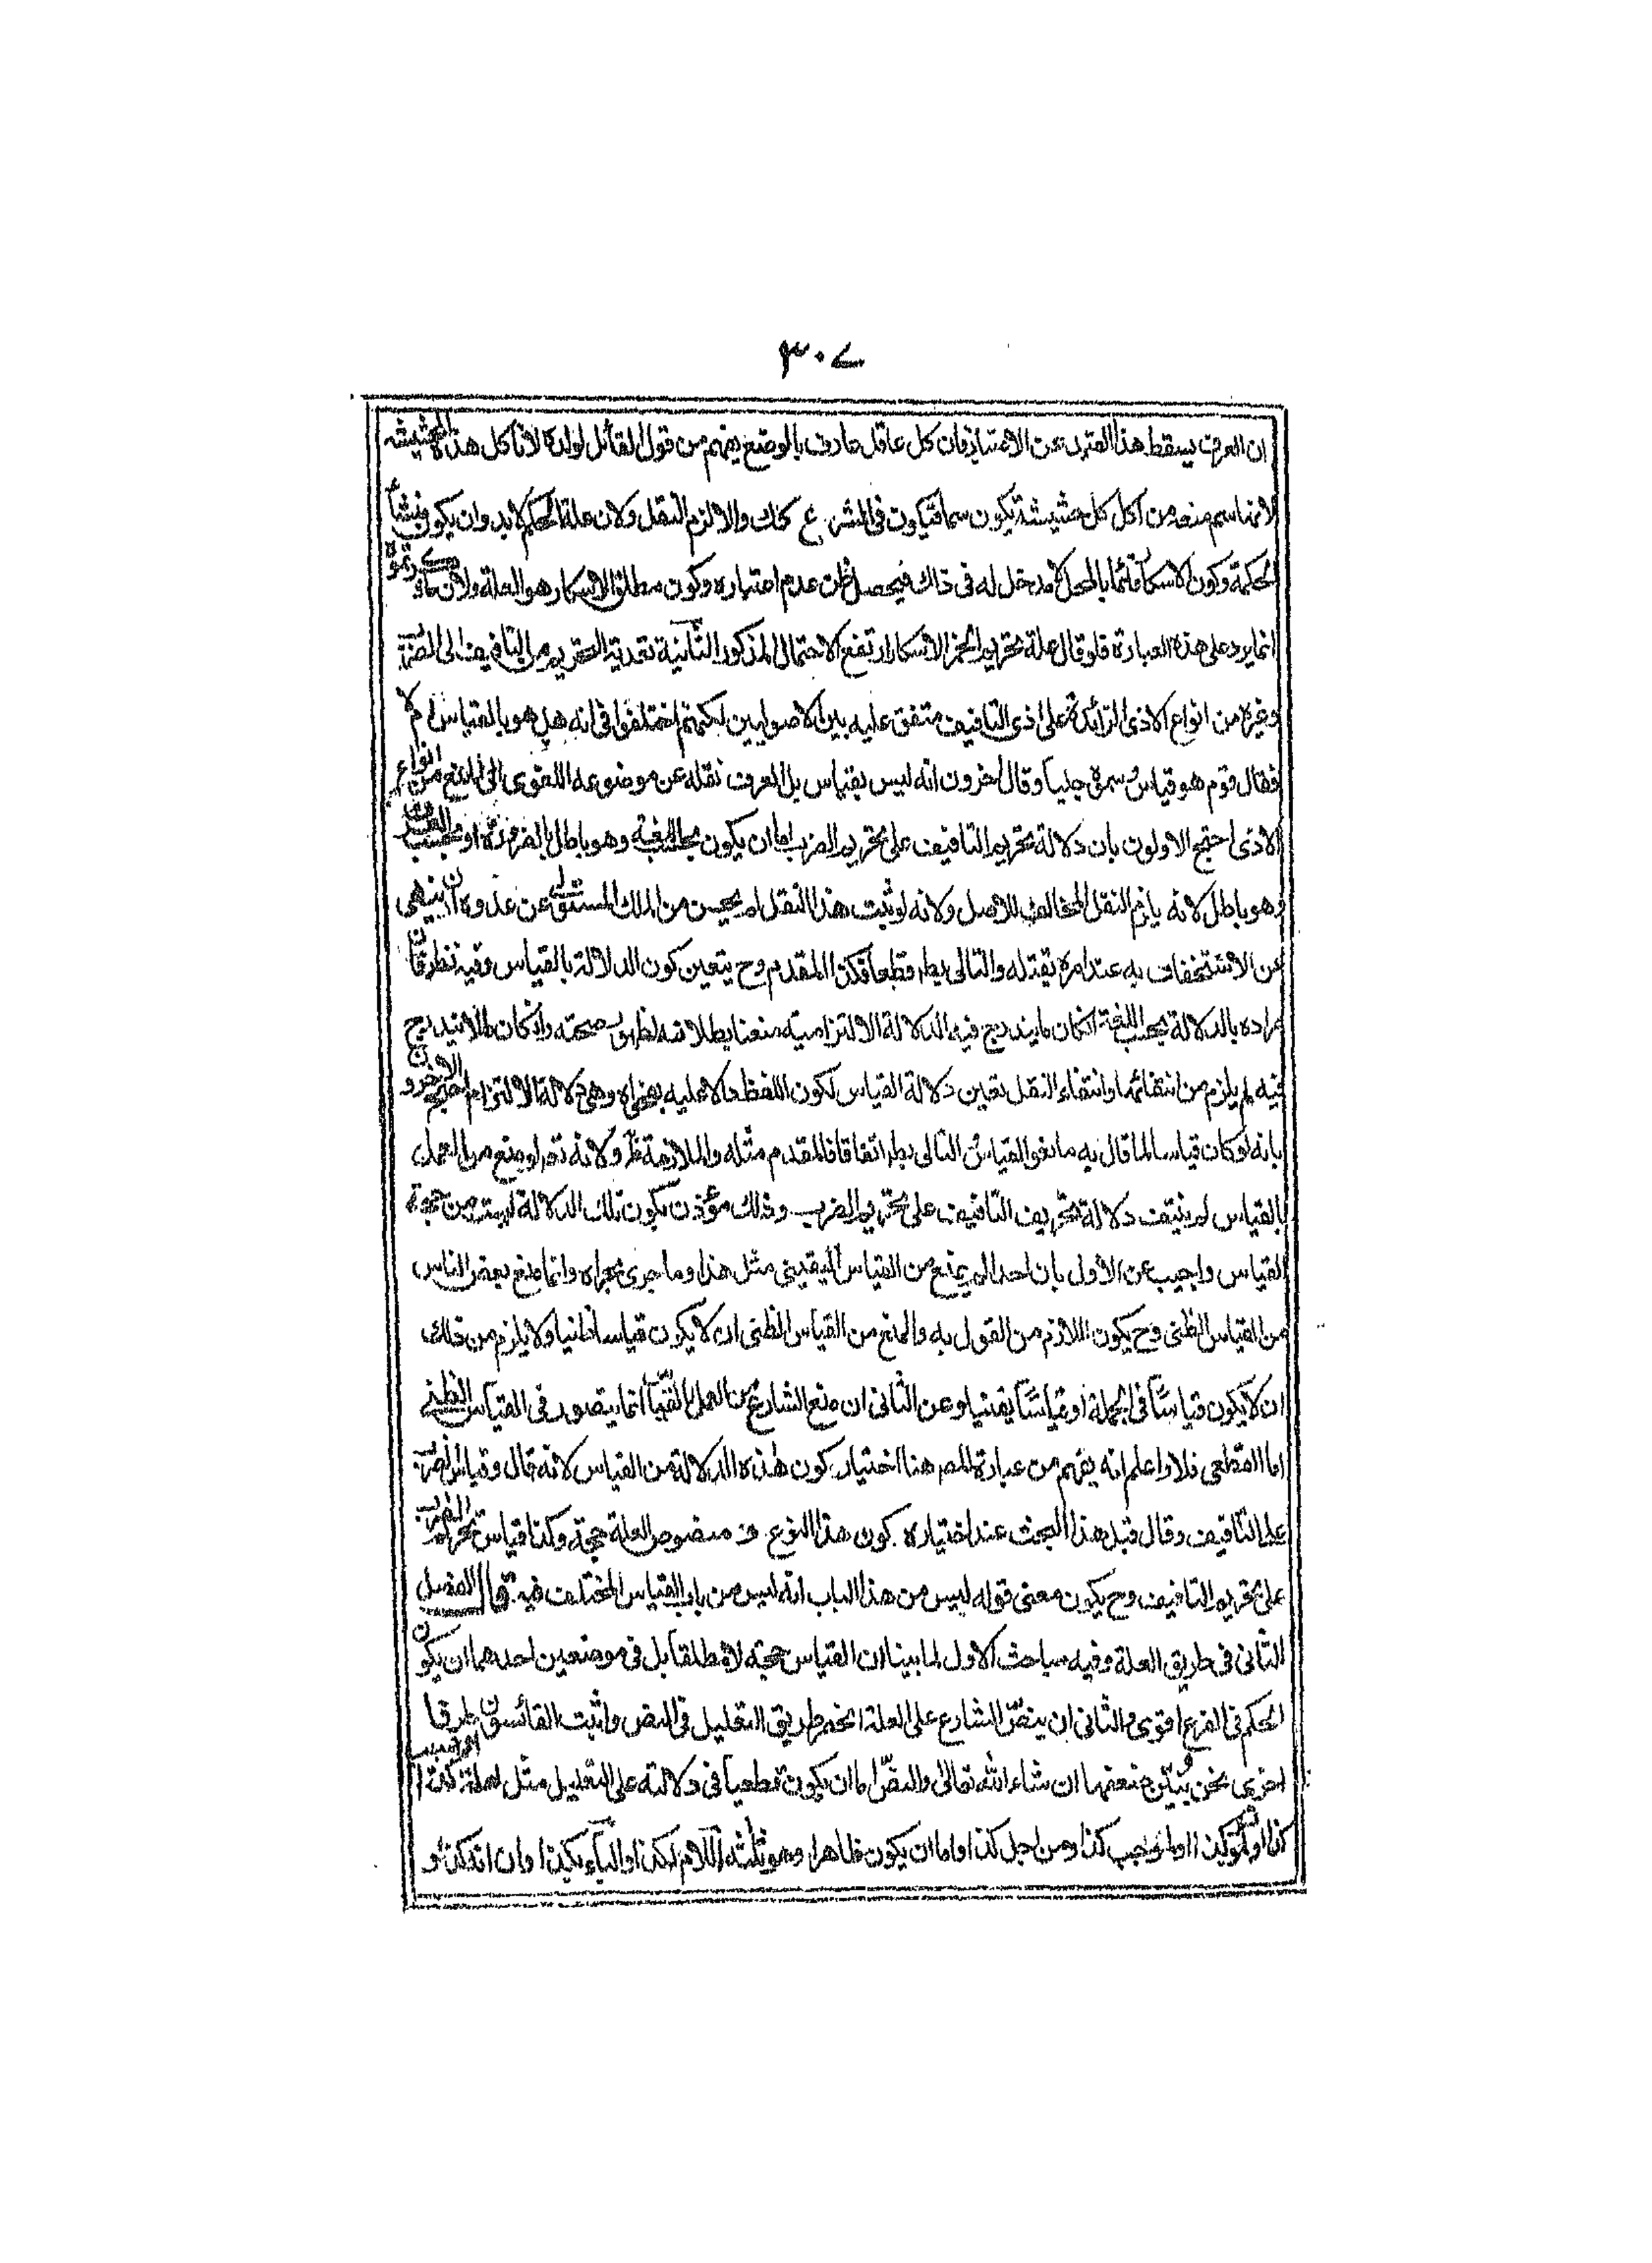 ٣٠٧
ان العرف يسقط هذا القيد عن الاعتبار فان كل عاقل عارف بالوضع يفهم من قول القائل لولده لا تأكل هذه الحشيشه
لانها سم منعه من اكل كل حشيشة يكون سما فيكون في الشرع كذلك والا لزم النقل ولان علة الحكم لابد وان يكون منشأ
الحكمة وكون الاسكار قائما بالمحل لا مدخل له في ذلك فيحصل ظن عدم اعتباره وكون مطلق الاسكار هو العلة ولان ما ذكرتموه
انما يرد على هذه العبارة فلو قال علة تحريم الخمر الاسكار ارتفع الاحتمال المذكور الثانية تعدية التحريم من التافيف الى الضرب
وغيره من انواع الاذى الزائدة على اذى التافيف متفق عليه بين الاصوليين لكنهم اختلفوا في انه هل هو بالقياس ام لا
فقال قوم هو قياس وسموه جليا وقال اخرون انه ليس بقياس بل العرف نقله عن موضوعه اللغوي الى المنع من انواع
الاذى احتج الاولون بان دلالة تحريم التافيف على تحريم الضرب اما ان يكون بحسب اللغة وهو باطل بالضرورة او بحسب العرف
وهو باطل لانه يلزم النقل المخالف للاصل ولانه لو ثبت هذا النقل لم يحسن من الملك المستولى عن عدوه ان ينهى
عن الاستخفاف به عند امره بقتله والتالي بط قطعا فكذا المقدم وح يتعين كون الدلالة بالقياس وفيه نظر فان
مراده بالدلالة بحسب اللغة ان كان ما يندرج فيه الدلالة الالتزامية منعنا بطلانه لظهور صحته وان كان ما لا يندرج
فيه لم يلزم من انتفائها وانتفاء النقل تعين دلالة القياس لكون اللفظ دالا عليه بمعناه وهي دلالة الالتزام احتج الاخرون
بانه لو كان قياسا لما قال به مانعوا القياس التالي بط اتفاقا فالمقدم مثله والملازمة ظ ولانه تعه لو منع من العمل
بالقياس لم ينتف دلالة تحريف التافيف على تحريم الضرب وذلك مؤذن بكون تلك الدلالة ليست من جهة
القياس واجيب عن الاول بان احدا لم يمنع من القياس اليقيني مثل هذا وما جرى مجراه وانما منع بعض الناس
من القياس الظني وح يكون اللازم من القول به والمنع من القياس الظني ان لا يكون قياسا ظنيا ولا يلزم من ذلك
ان لا يكون قياسا في الجملة او قياسا يقينيا وعن الثاني ان منع الشارع من العمل بالقياس انما يتصور في القياس الظني
اما القطعي فلا واعلم انه يفهم من عبارة المص هنا اختيار كون هذه الدلالة من القياس لانه قال وقياس الضرب
على التافيف وقال قبل هذا البحث عند اختياره كون هذا النوع من منصوص العلة حجة وكذا قياس تحريم الضرب
على تحريم التافيف وح يكون معنى قوله ليس من هذا الباب انه ليس من باب القياس المختلف فيه قال الفصل
الثاني في طريق العلة وفيه مباحث الاول لما بينا ان القياس حجة لا مطلقا بل في موضعين احدهما ان يكون
الحكم في الفرع اقوى والثاني ان ينص الشارع على العلة انحصر طريق التعليل في النص واثبت القائسون طرقا
اخرى نحن نبين ضعفها ان شاء الله تعالى والنص اما ان يكون قطعيا في دلالته على التعليل مثل لعلة كذا او لسبب
كذا او لموثر كذا او لموجب كذا ومن اجل كذا او اما ان يكون ظاهرا وهو ثلثة اللام لكذا والباء بكذا وان انه كذا و